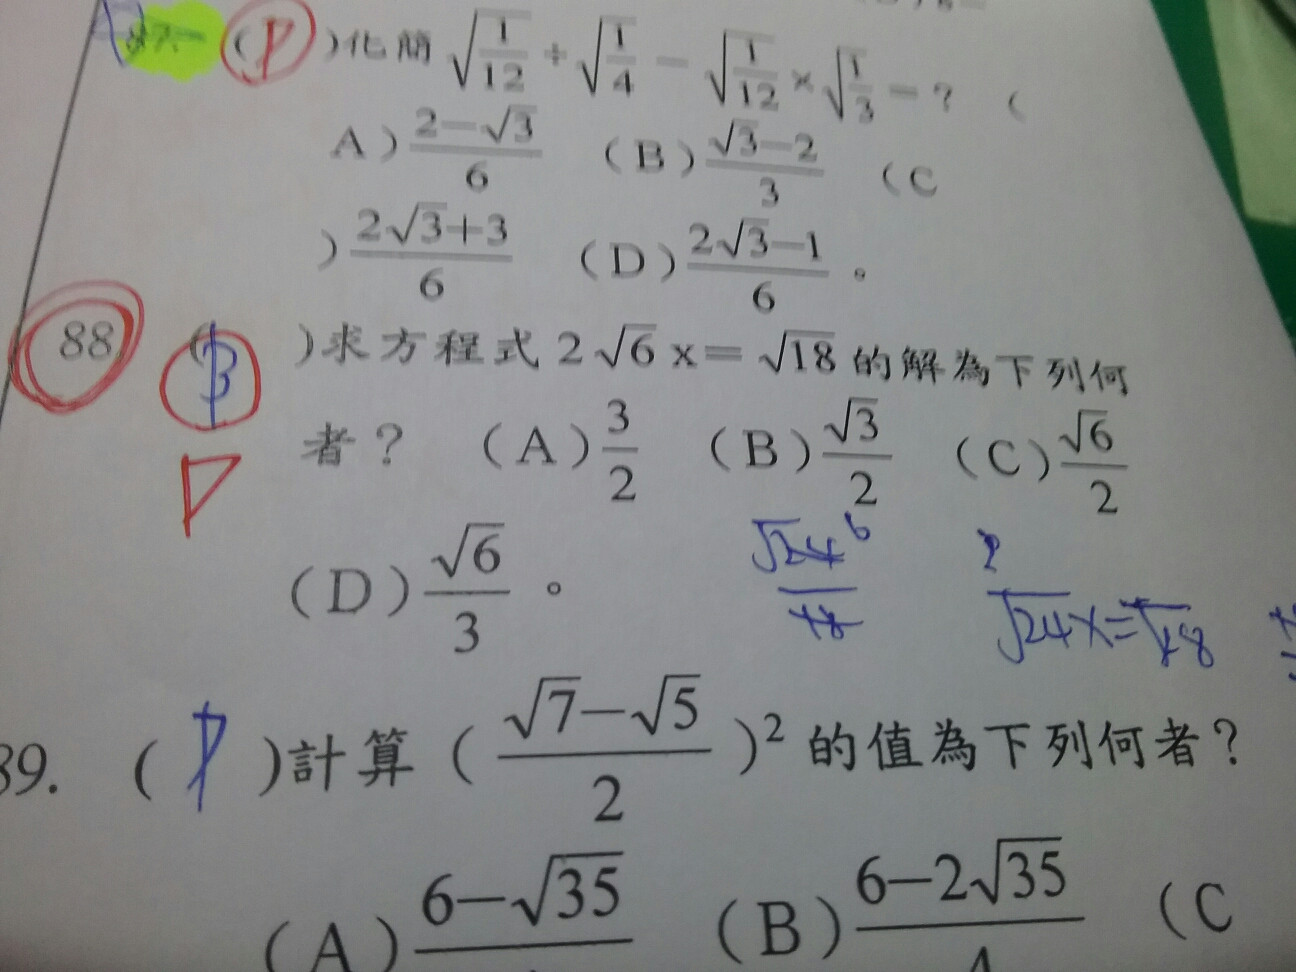 87. ( D )化簡 √(1/12) ÷ √(1/4) － √(1/12) × √(1/3) ＝？ (
A) (2－√3)/6 (B) (√3－2)/3 (C
) (2√3+3)/6 (D) (2√3－1)/6 。
88 ( B )求方程式 2√6 x＝ √18 的解為下列何
者？ (A) 3/2 (B) √3/2 (C) √6/2
D
(D) √6/3 。
√24 6
2
√24 x = √18
89. ( D )計算 ( (√7－√5)/2 )² 的值為下列何者？
(A) 6－√35 (B) (6－2√35)/4 (C